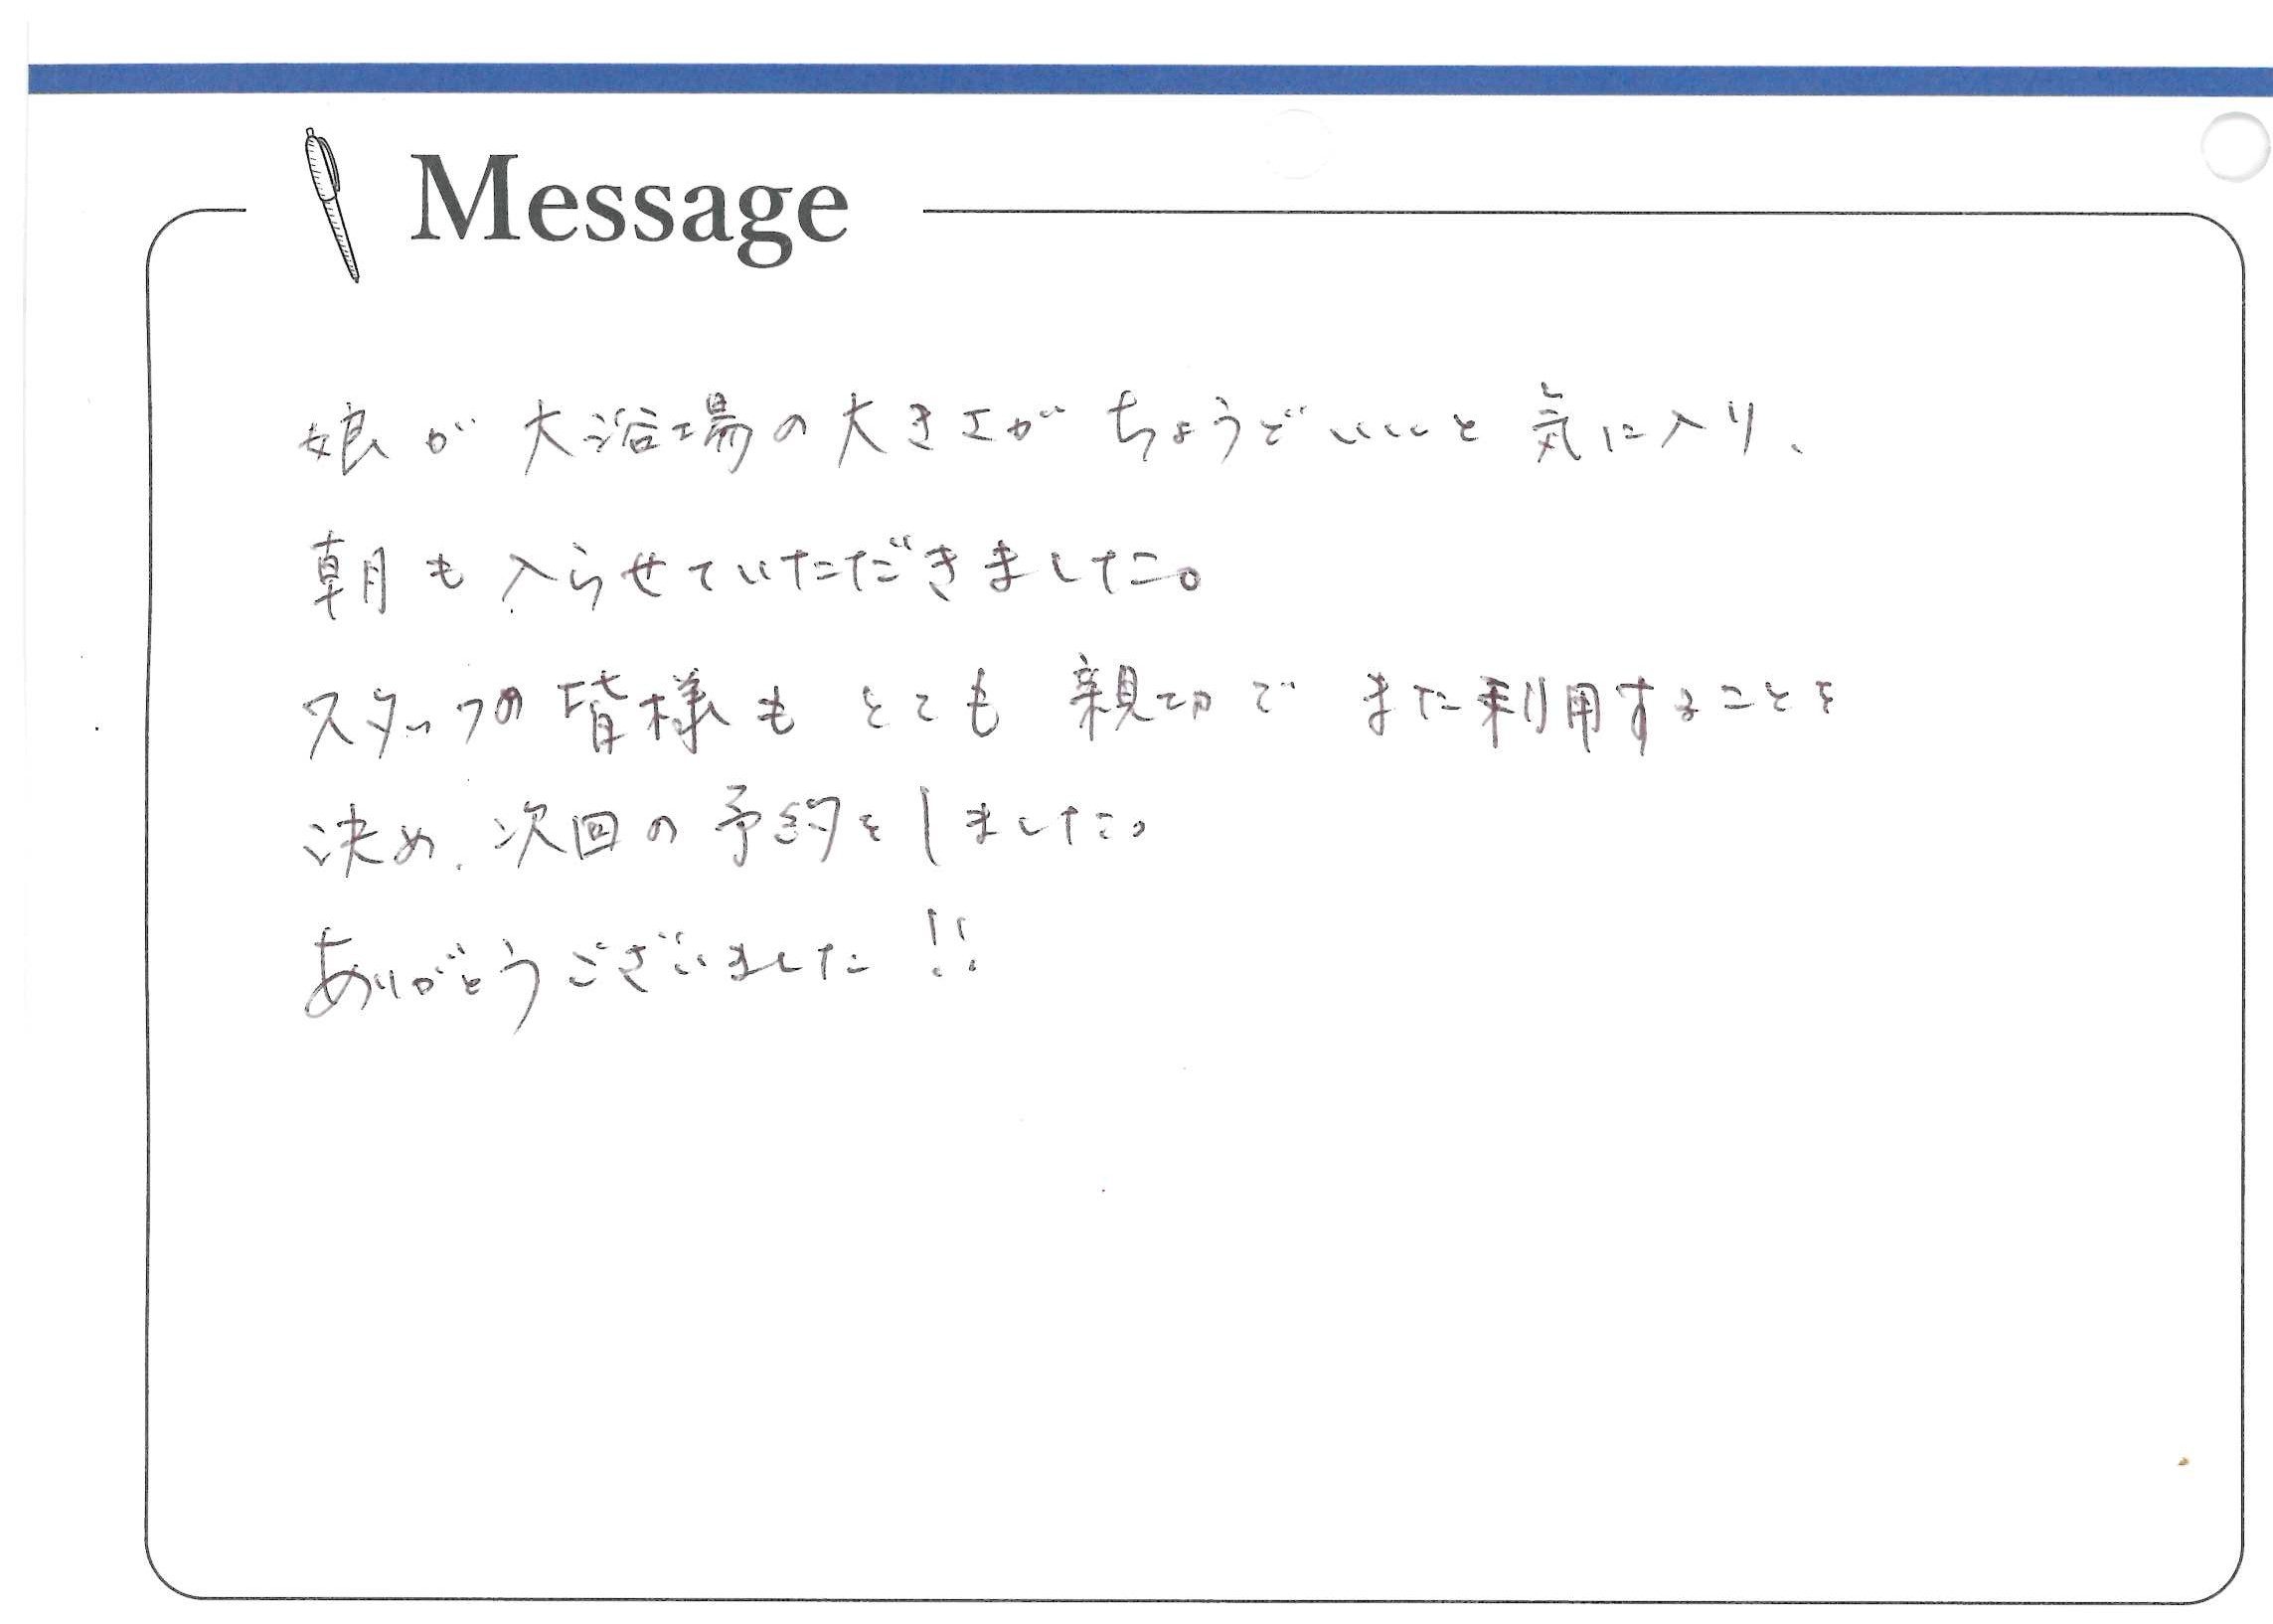 Message
娘が大浴場の大きさがちょうどいいと気に入り、
朝も入らせていただきました。
スタッフの皆様もとても親切でまた利用することを
決め、次回の予約をしました。
ありがとうございました!!